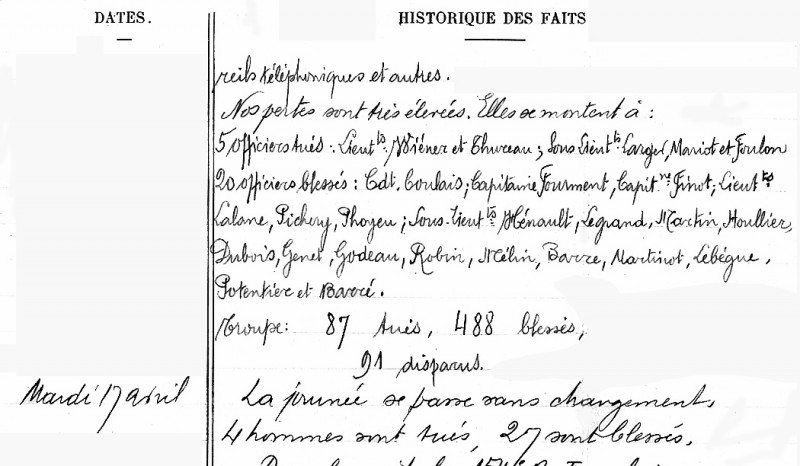 DATES.
HISTORIQUE DES FAITS
reils téléphoniques et autres.
Nos pertes sont très élevées. Elles se montent à :
5 officiers tués : Lieut.ts Wiéner et Thureau ; Sous Lieut.ts Larger, Mariot et Foulon
20 officiers blessés : Cdt. Coulais ; Capitaine Fourment, Capit.ne Finot ; Lieut.ts
Lalane, Pichery, Phoyeu ; Sous-Lieut.ts Hénault, Legrand, Martin, Houllier,
Dubois, Genet, Godeau, Robin, Mélin, Barre, Martinot, Lebégue,
Potentière et Barré.
Troupe : 87 tués, 488 blessés,
91 disparus.
Mardi 17 avril
La journée se passe sans changement,
4 hommes sont tués, 27 sont blessés,